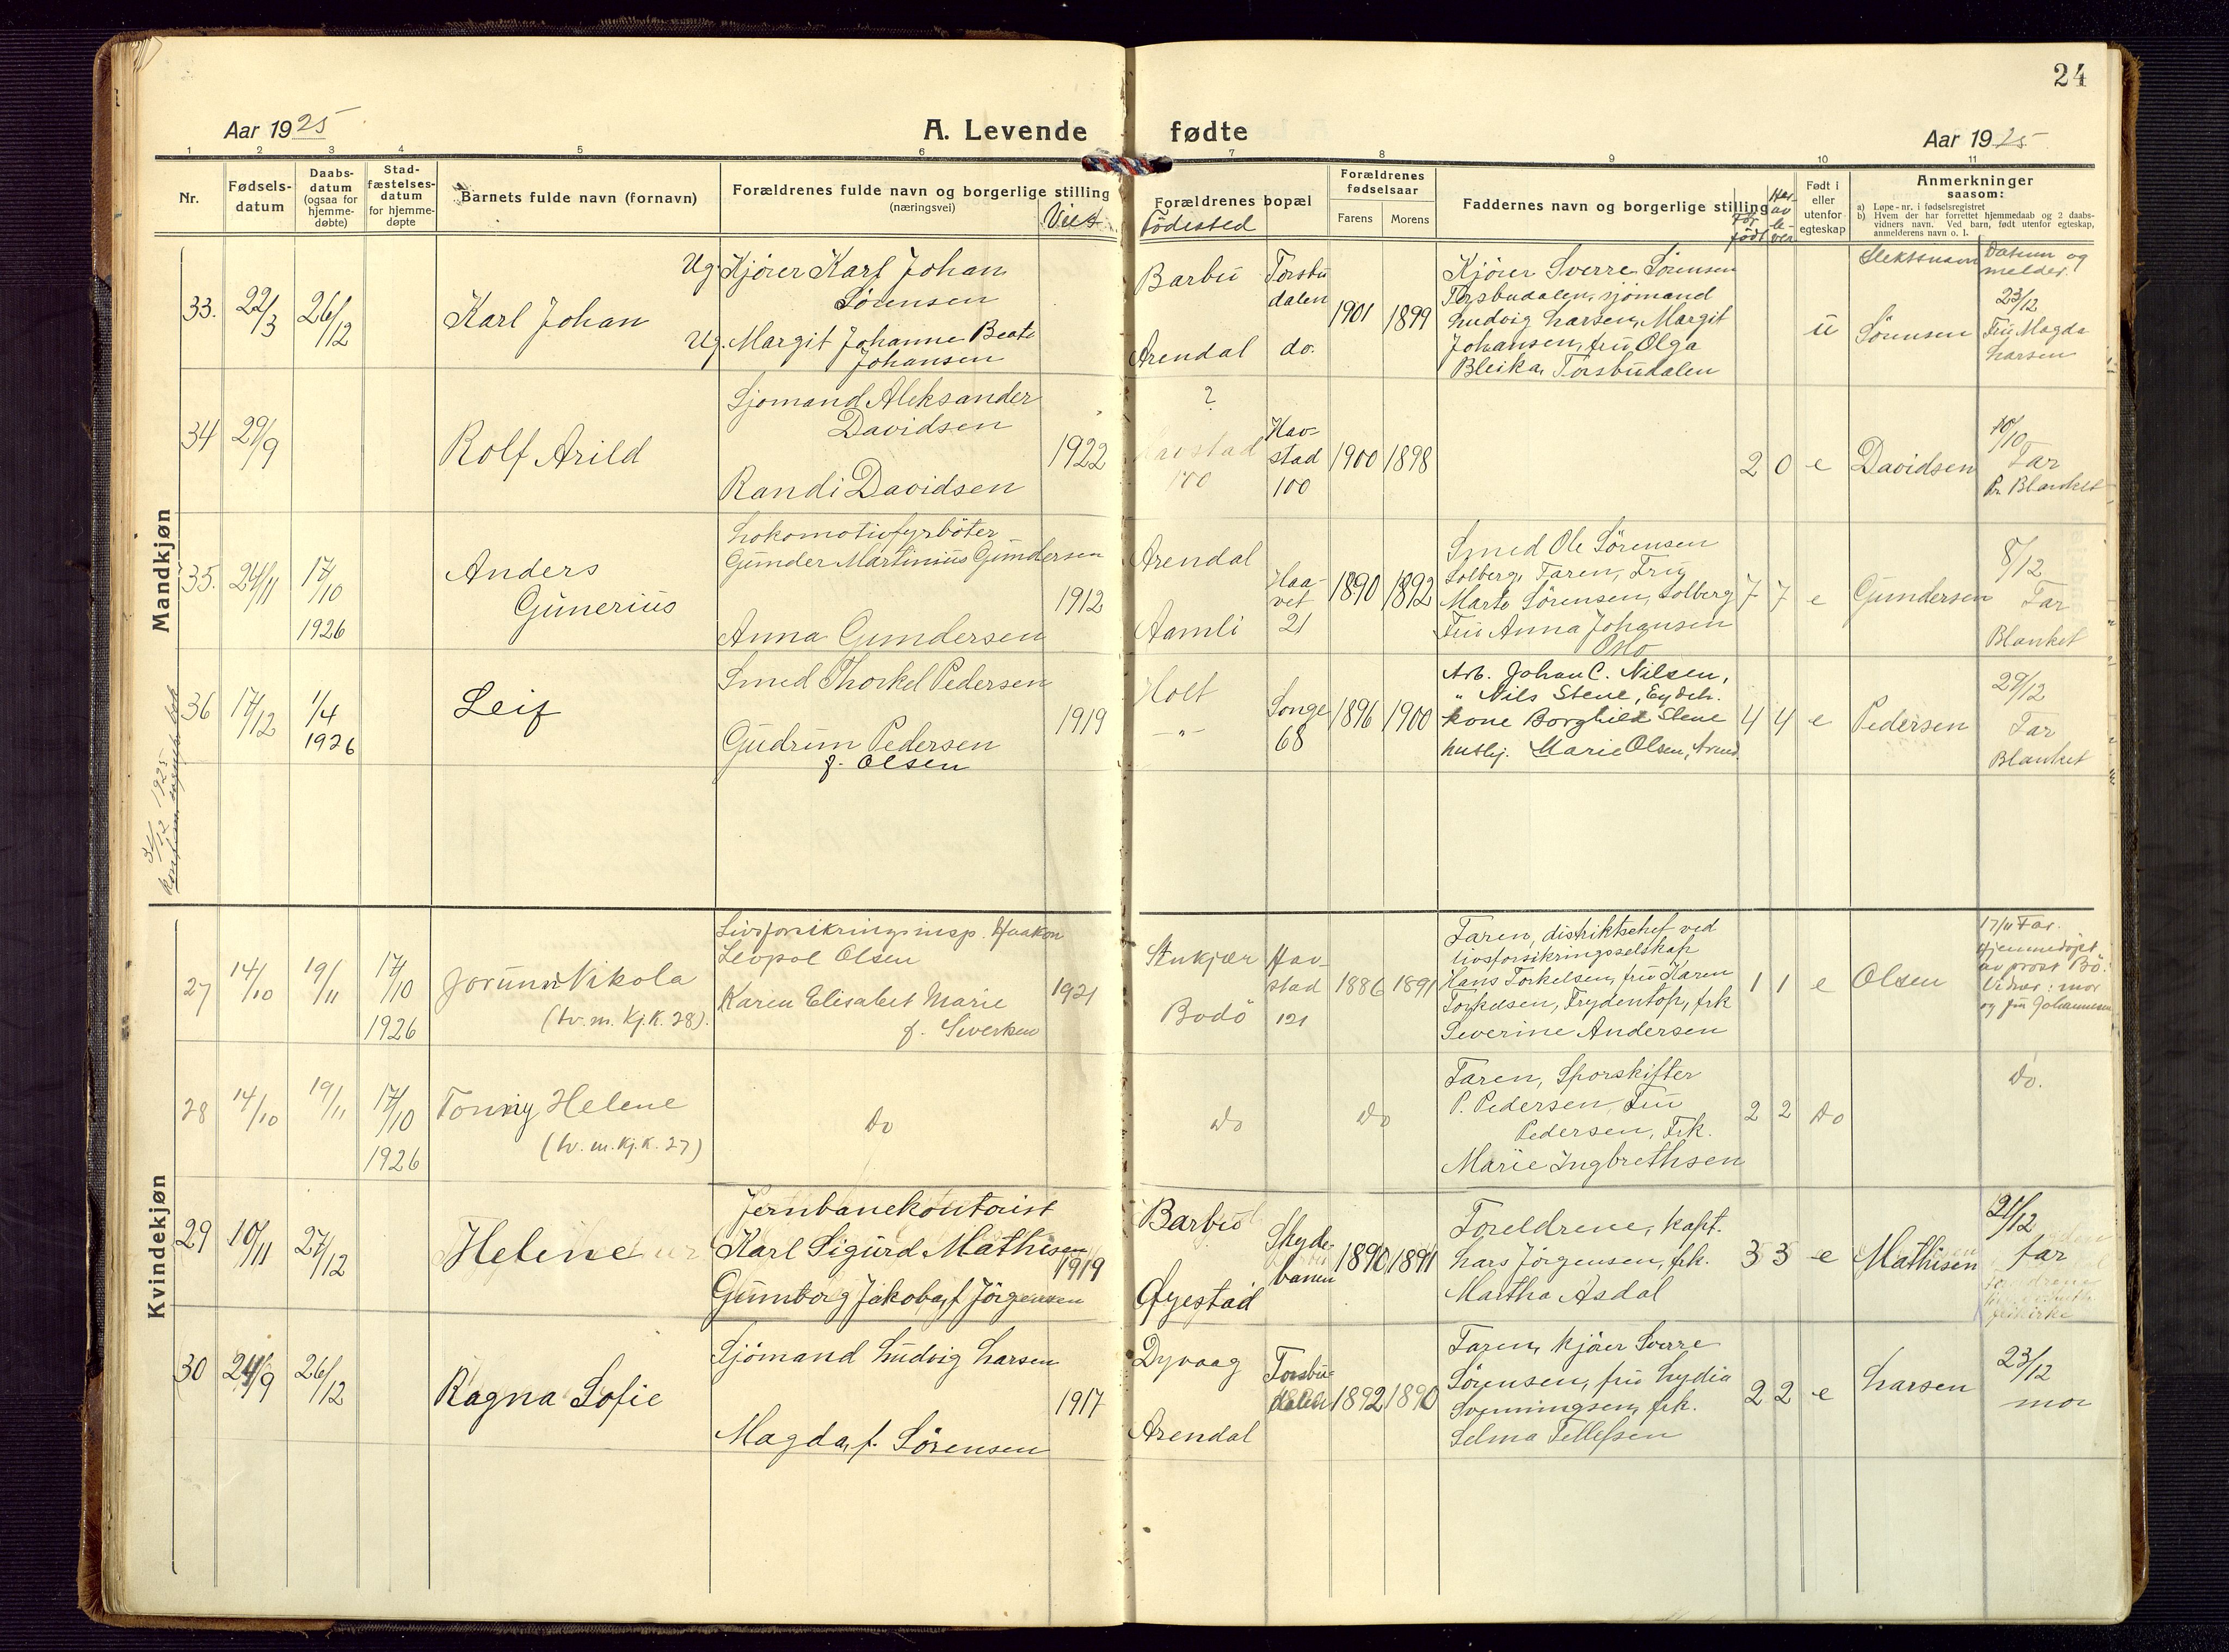 24
Aar 1925
A. Levende fødte
Aar 1925
1 2 3 4 5 6 7 8 9 10 11
Nr.
Fødsels-
datum
Daabs-
datum
(ogsaa for
hjemme-
døbte)
Stad-
fæstelses-
datum
for hjemme-
døpte
Barnets fulde navn (fornavn)
Forældrenes fulde navn og borgerlige stilling
(næringsvei)
Viet
Forældrenes bopæl
Födested
Forældrenes
fødselsaar
Farens
Morens
Faddernes navn og borgerlige stilling
Før
født
Født i
eller
utenfor
egteskap
Anmerkninger
saasom:
a) Løpe-nr. i fødselsregistret
b) Hvem der har forrettet hjemmedaab og 2 daabs-
vidners navn. Ved barn, født utenfor egteskap,
anmelderens navn o. l.
Slektsnavn
Datum og
melder.
Mandkjøn
33.
22/3
26/12
Karl Johan
Ug. Kjörer Karl Johan
Sörensen
Ug. Margit Johanne Beate
Johansen
Barbu
Arendal
Torsbu
dalen
do.
1901
1899
Kjörer Sverre Sörensen
Torsbudalen, sjömand
Ludvig Larsen, Margit
Johansen, fru Olga
Bleika, Torsbudalen
u
Sörensen
23/12
Fru Magda
Larsen
34
29/9
Rolf Arild
Sjömand Aleksander
Davidsen
Randi Davidsen
1922
?
Havstad
100
Hav-
stad
100
1900
1898
2 0 e
Davidsen
10/10
Far
Pr. Blanket
35.
24/11
17/10
1926
Anders
Gunerius
Lokomotivfyrböter
Gunder Martinius Gundersen
Anna Gundersen
1912
Arendal
Aamli
Haa-
vet
21
1890
1892
Smed Ole Sörensen
Solberg, Faren, Fru
Marte Sörensen, Solberg
Fru Anna Johansen
Oslo
7 7 e
Gundersen
8/12
Far
Blanket
36
17/12
1/4
1926
Leif
Smed Thorkel Pedersen
Gudrun Pedersen
f. Olsen
1919
Holt
-"-
Songe
68
1896
1900
Arb. Johan C. Nilsen,
" Nils Stene, Eydeh.
kone Borghild Stene
hushj. Marie Olsen, Arend.
4 4 e
Pedersen
29/12
Far
Blanket
31/12 1925
Kvindekjøn
27
14/10
19/11
17/10
1926
Jorunn Nikola
(tv. m. Kj.K. 28).
Livsforsikringsinsp. Haakon
Leopol Olsen
Karen Elisabet Marie
f. Siverksen
1921
Stenkjær
Bodö
Hav-
stad
121
1886
1891
Faren, distriktschef ved
livsforsikringsselskap
Hans Torkelsen, fru Karen
Torkelsen, Frydentop, frk
Severine Andersen
1 1 e
Olsen
17/11 Far.
Hjemmedöpt
av prost Bö.
Vidner: mor
og fru Johannesen
28
14/10
19/11
17/10
1926
Tonny Helene
(tv. m. Kj.K. 27)
do
do
do
Faren, Sporskifter
P. Pedersen, Fru
Pedersen, Frk.
Marie Ingbrethsen
2 2 do
do.
29
10/11
27/12
Helene
Jernbanekontorist
Karl Sigurd Mathisen
Gunborg Jakoba, f. Jörgensen
1919
Barbu
Øyestad
Skyde-
banen
1890
1891
Foreldrene, kapt.
Lars Jörgensen, frk.
Martha Asdal
3 3 e
Mathisen
21/12
far
30
24/9
26/12
Ragna Sofie
Sjömand Ludvig Larsen
Magda, f. Sörensen
1917
Dyvaag
Arendal
Torsbu-
dalen
1892
1890
Faren, kjörer Sverre
Sörensen, fru Lydia
Svenningsen, frk.
Selma Tellefsen
2 2 e
Larsen
23/12
mor